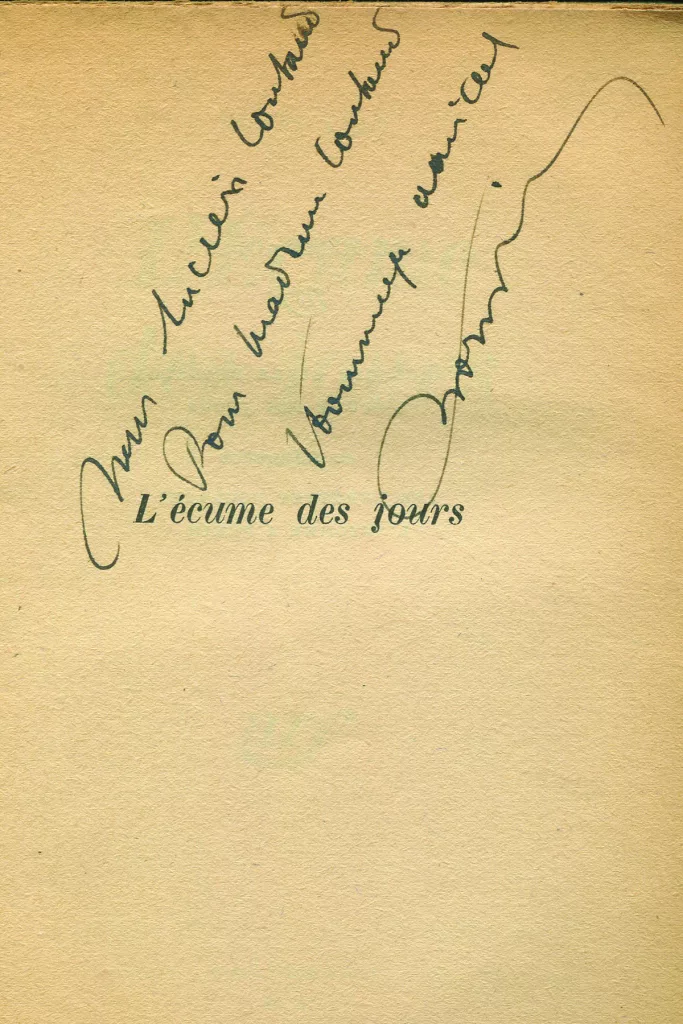 Pour Lucien Coutaud
Pour Madame Coutaud
Hommage amical
Boris
L'écume des jours